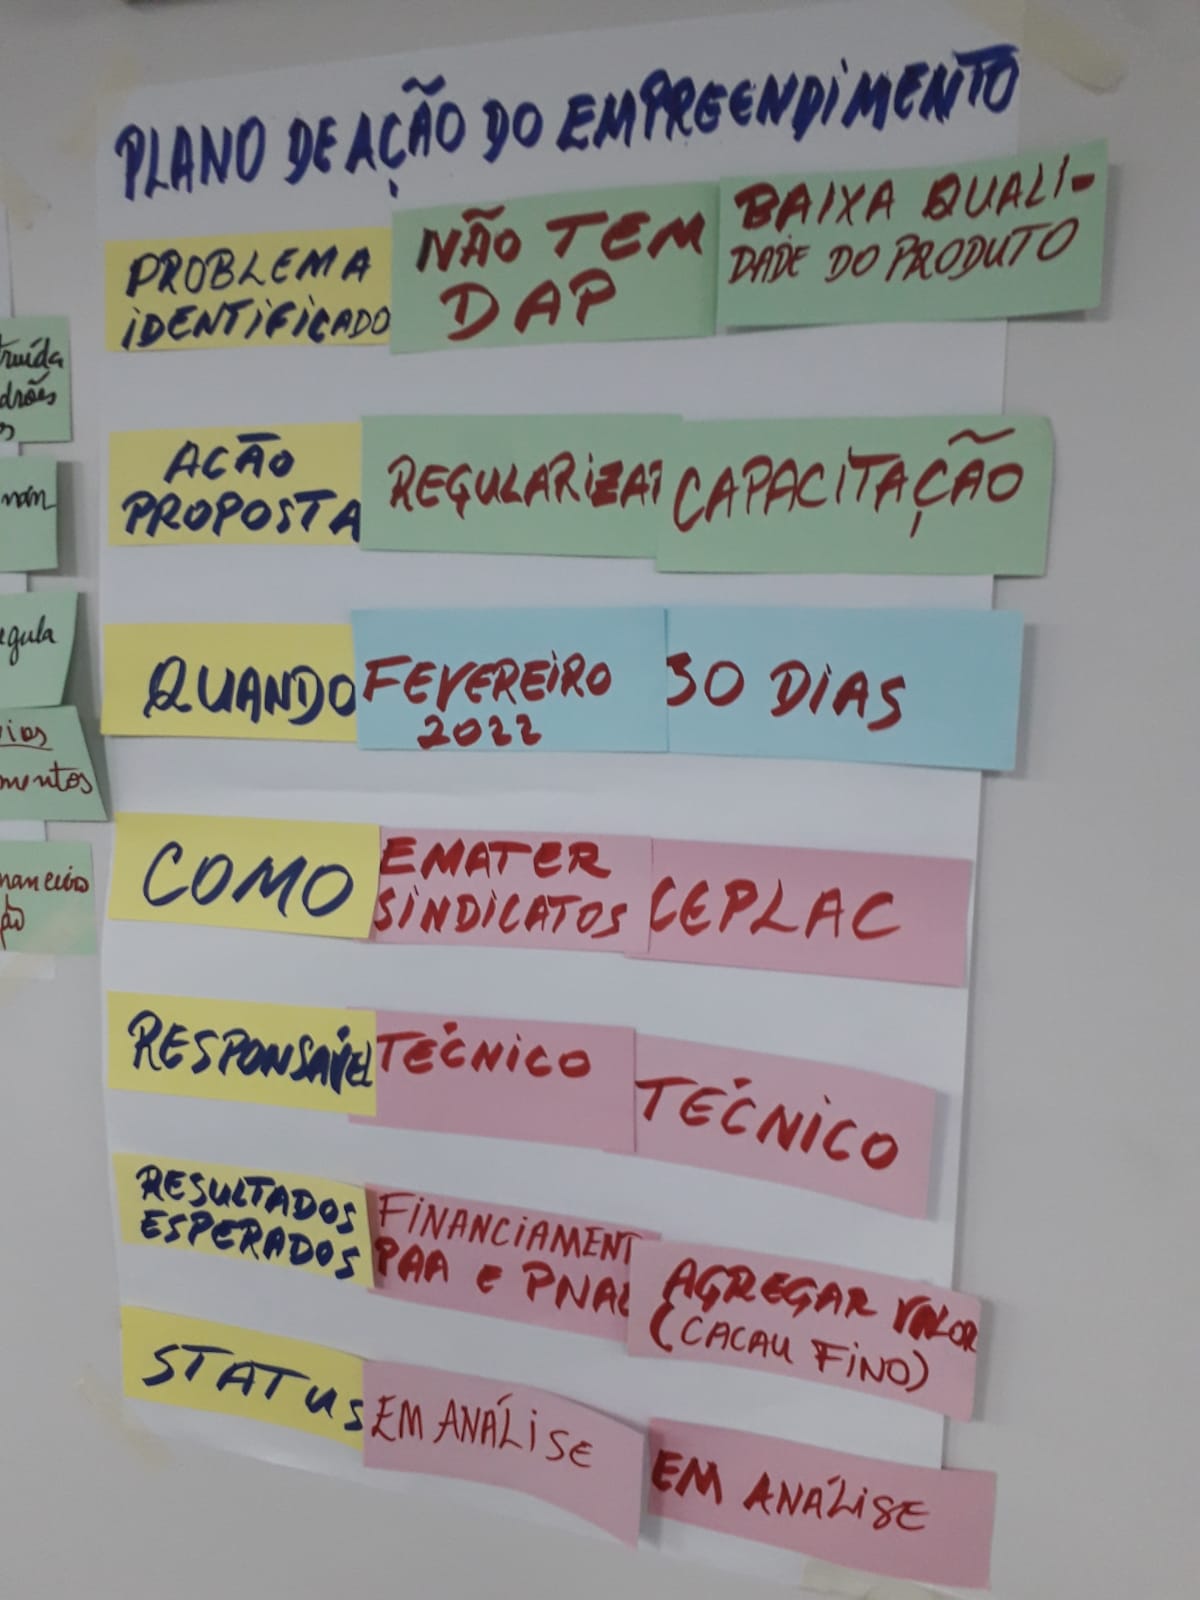 PLANO DE AÇÃO DO EMPREENDIMENTO
PROBLEMA
IDENTIFICADO
NÃO TEM
DAP
BAIXA QUALI-
DADE DO PRODUTO
ACÃO
PROPOSTA
REGULARIZAR
CAPACITAÇÃO
QUANDO
FEVEREIRO
2022
30 DIAS
COMO
EMATER
SINDICATOS
CEPLAC
RESPONSÁVEL
TÉCNICO
TÉCNICO
RESULTADOS
ESPERADOS
FINANCIAMENT
PAA E PNAE
AGREGAR VALOR
(CACAU FINO)
STATUS
EM ANÁLISE
EM ANÁLISE
truída
drões
egula
mentos